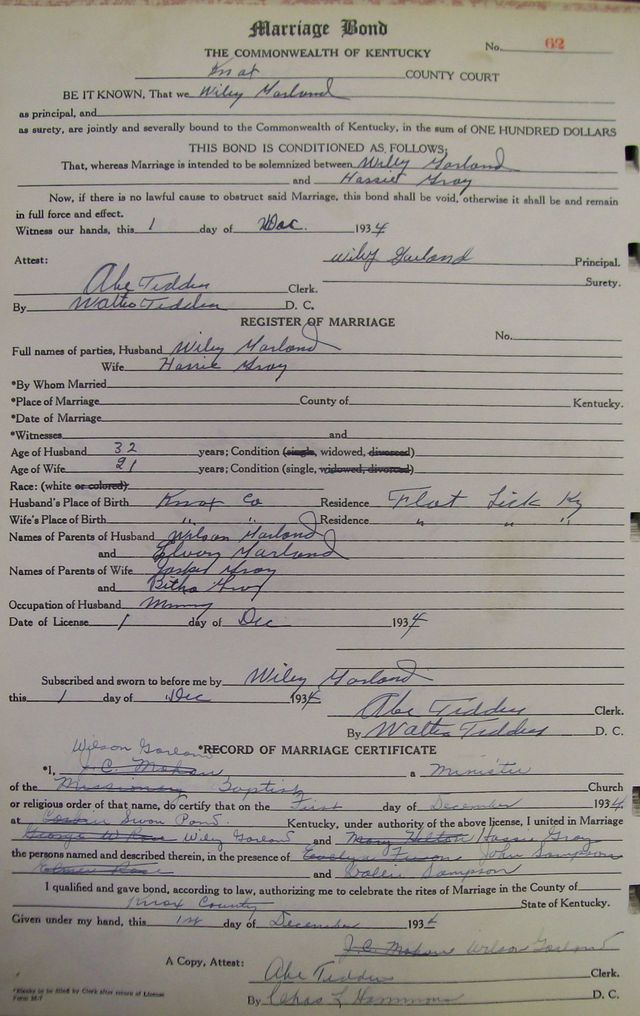 Marriage Bond
THE COMMONWEALTH OF KENTUCKY No. 62
Knox COUNTY COURT
BE IT KNOWN, That we Wiley Garland
as principal, and
as surety, are jointly and severally bound to the Commonwealth of Kentucky, in the sum of ONE HUNDRED DOLLARS
THIS BOND IS CONDITIONED AS FOLLOWS:
That, whereas Marriage is intended to be solemnized between Wiley Garland
and Hassie Gray
Now, if there is no lawful cause to obstruct said Marriage, this bond shall be void, otherwise it shall be and remain
in full force and effect.
Witness our hands, this 1 day of Dec. 1934
Attest: Wiley Garland Principal.
Surety.
Abe Tedders Clerk.
By Walter Tedders D. C.
REGISTER OF MARRIAGE
No.
Full names of parties, Husband Wiley Garland
Wife Hassie Gray
*By Whom Married
*Place of Marriage County of Kentucky.
*Date of Marriage
*Witnesses and
Age of Husband 32 years; Condition (single, widowed, divorced)
Age of Wife 21 years; Condition (single, widowed, divorced)
Race: (white or colored)
Husband's Place of Birth Knox Co Residence Flat Lick Ky
Wife's Place of Birth " " Residence " " "
Names of Parents of Husband Wilson Garland
and Garland
Names of Parents of Wife Gray
and Bitha Gray
Occupation of Husband
Date of License 1 day of Dec 1934
Subscribed and sworn to before me by Wiley Garland
this 1 day of Dec 1934
Abe Tedders Clerk.
By Walter Tedders D. C.
Wilson Garland
*RECORD OF MARRIAGE CERTIFICATE
*I, J. C. Mahan a Minister
of the Missionary Baptist Church
or religious order of that name, do certify that on the First day of December 1934
at Swon Pond Kentucky, under authority of the above license, I united in Marriage
George W Rose Wiley Garland and Mary Helton Hassie Gray
the persons named and described therein, in the presence of John Sampson
and Sampson
I qualified and gave bond, according to law, authorizing me to celebrate the rites of Marriage in the County of
Knox County State of Kentucky.
Given under my hand, this 1st day of December 1934
J. C. Mahan Wilson Garland
A Copy, Attest:
Abe Tedders Clerk.
By Chas L Hammons D. C.
*Blanks to be filled by Clerk after return of License
Form M-7